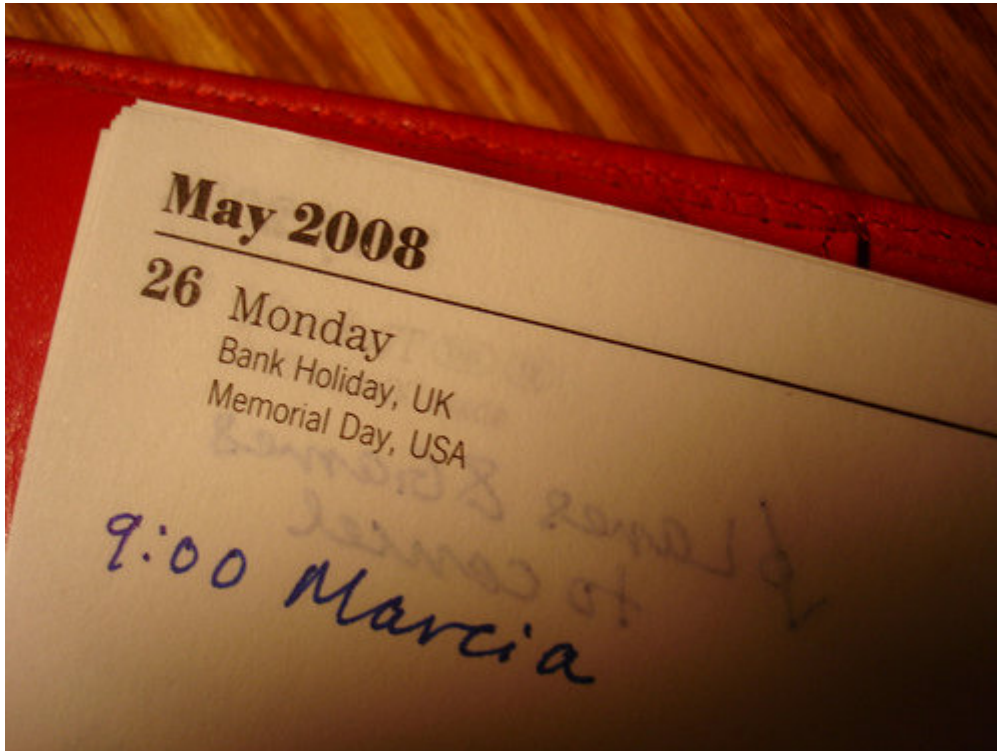 May 2008
26 Monday
Bank Holiday, UK
Memorial Day, USA
9:00 Marcia